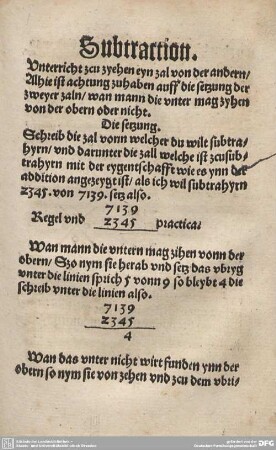 Subtraction.
Vnterricht zcu zyehen eyn zal von der andern/
Alhie ist achtung zuhaben auff die setzung der
zweyer zaln/ wan mann die vnter mag zyhen
von der obern oder nicht.
Die setzung.
Schreib die zal vonn welcher du wilt subtra-
hyrn/ vnd darunter die zall welche ist zcusub-
trahyrn mit der eygentschafft wie es ynn der
addition angezeygt ist/ als ich wil subtrahyrn
2345. von 7139. setz also.
7139
Regel vnd 2345 practica:
Wan mann die vntern mag zihen vonn der
obern/ Szo nym sie herab vnd setz das vbryg
vnter die linien sprich 5 vonn 9 so bleybt 4 die
schreib vnter die linien also.
7139
2345
4
Wan das vnter nicht wirt funden ynn der
obern so nym sie von zehen vnd zcu dem vbri-